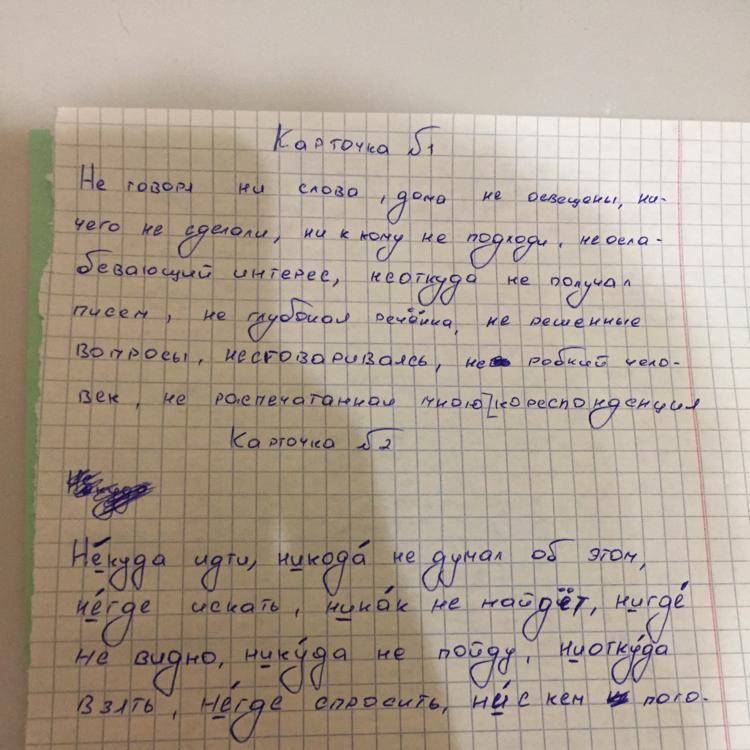 Карточка №1
Не говоря ни слова, дома не освещены, ни-
чего не сделали, ни к кому не подходи, неосла-
бевающий интерес, неоткуда не получал
писем, не глубокая речонка, не решенные
вопросы, несговариваясь, не робкий чело-
век, не распечатанная мною кореспонденция
Карточка №2
Не́куда идти, никода́ не думал об этом,
не́где искать, ника́к не найдёт, нигде́
не видно, нику́да не пойду, ниотку́да
взять, не́где спросить, ни́ с кем пого-